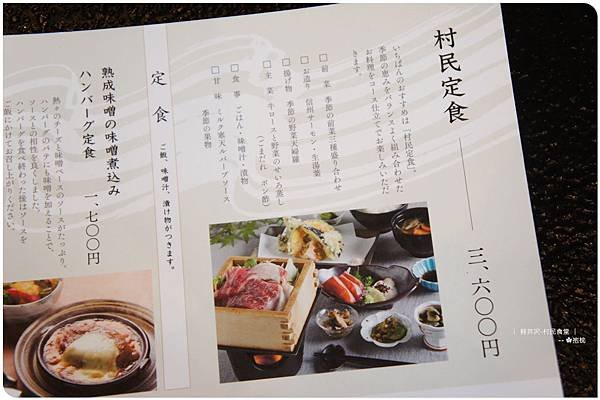 村民定食
三、六〇〇円
いちばんのおすすめは「村民定食」。
季節の恵みをバランスよく組み合わせた
お料理をコース仕立てでお楽しみいただ
きます。
□ 前 菜 季節の前菜三種盛り合わせ
□ お造り 信州サーモン・生湯葉
□ 揚げ物 季節の野菜天婦羅
□ 主 菜 牛ロースと野菜のせいろ蒸し
(ごまだれ ポン酢)
□ 食 事 ごはん・味噌汁・漬物
□ 甘 味 ミルク寒天ルバーブソース
季節の果物
定食
ご飯、味噌汁、漬け物がつきます。
熟成味噌の味噌煮込み
ハンバーグ定食 一、七〇〇円
熱々のチーズと味噌ベースのソースがたっぷり。
ハンバーグのパテにも味噌を加えることで、
ソースとの相性を良くしました。
ハンバーグを食べ終わった後はソースを
ご飯にかけてお召し上がりください。
| 輕井沢-村民食堂 |
-- ✿抱枕